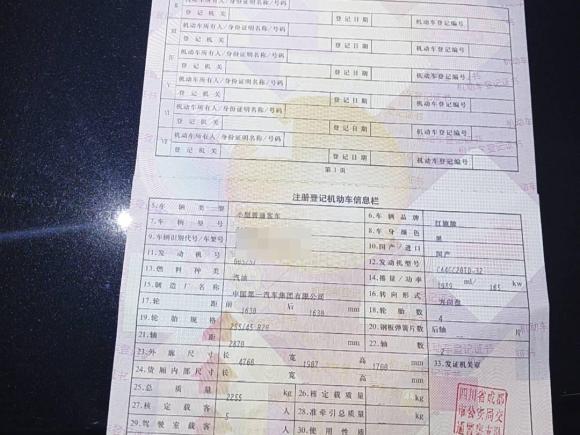 II 机动车所有人/身份证明名称/号码
登记机关 登记日期 机动车登记编号
III 机动车所有人/身份证明名称/号码
登记机关 登记日期 机动车登记编号
IV 机动车所有人/身份证明名称/号码
登记机关 登记日期 机动车登记编号
V 机动车所有人/身份证明名称/号码
登记机关 登记日期 机动车登记编号
VI 机动车所有人/身份证明名称/号码
登记机关 登记日期 机动车登记编号
VII 机动车所有人/身份证明名称/号码
登记机关 登记日期 机动车登记编号
第1页
注册登记机动车信息栏
5.车辆类型 小型普通客车 6.车辆品牌 红旗牌
7.车辆型号 8.车身颜色 黑
9.车辆识别代号/车架号 10.国产/进口 国产
11.发动机号 12.发动机型号 CA4GC20TD-32
13.燃料种类 汽油 14.排量/功率 1989 ml/ 165 kw
15.制造厂名称 中国第一汽车集团有限公司 16.转向形式 方向盘
17.轮距 前 1630 后 1630 mm 18.轮胎数 4
19.轮胎规格 255/45 R20 20.钢板弹簧片数 后轴 片
21.轴距 2870 mm 22.轴数 2
23.外廓尺寸 长 4760 宽 1907 高 1700 mm 33.发证机关章
24.货厢内部尺寸 长 宽 高 mm
25.总质量 2255 kg 26.核定载质量 kg
27.核定载客 5 人 28.准牵引总质量 kg
29.驾驶室载客 人 30.使用性质